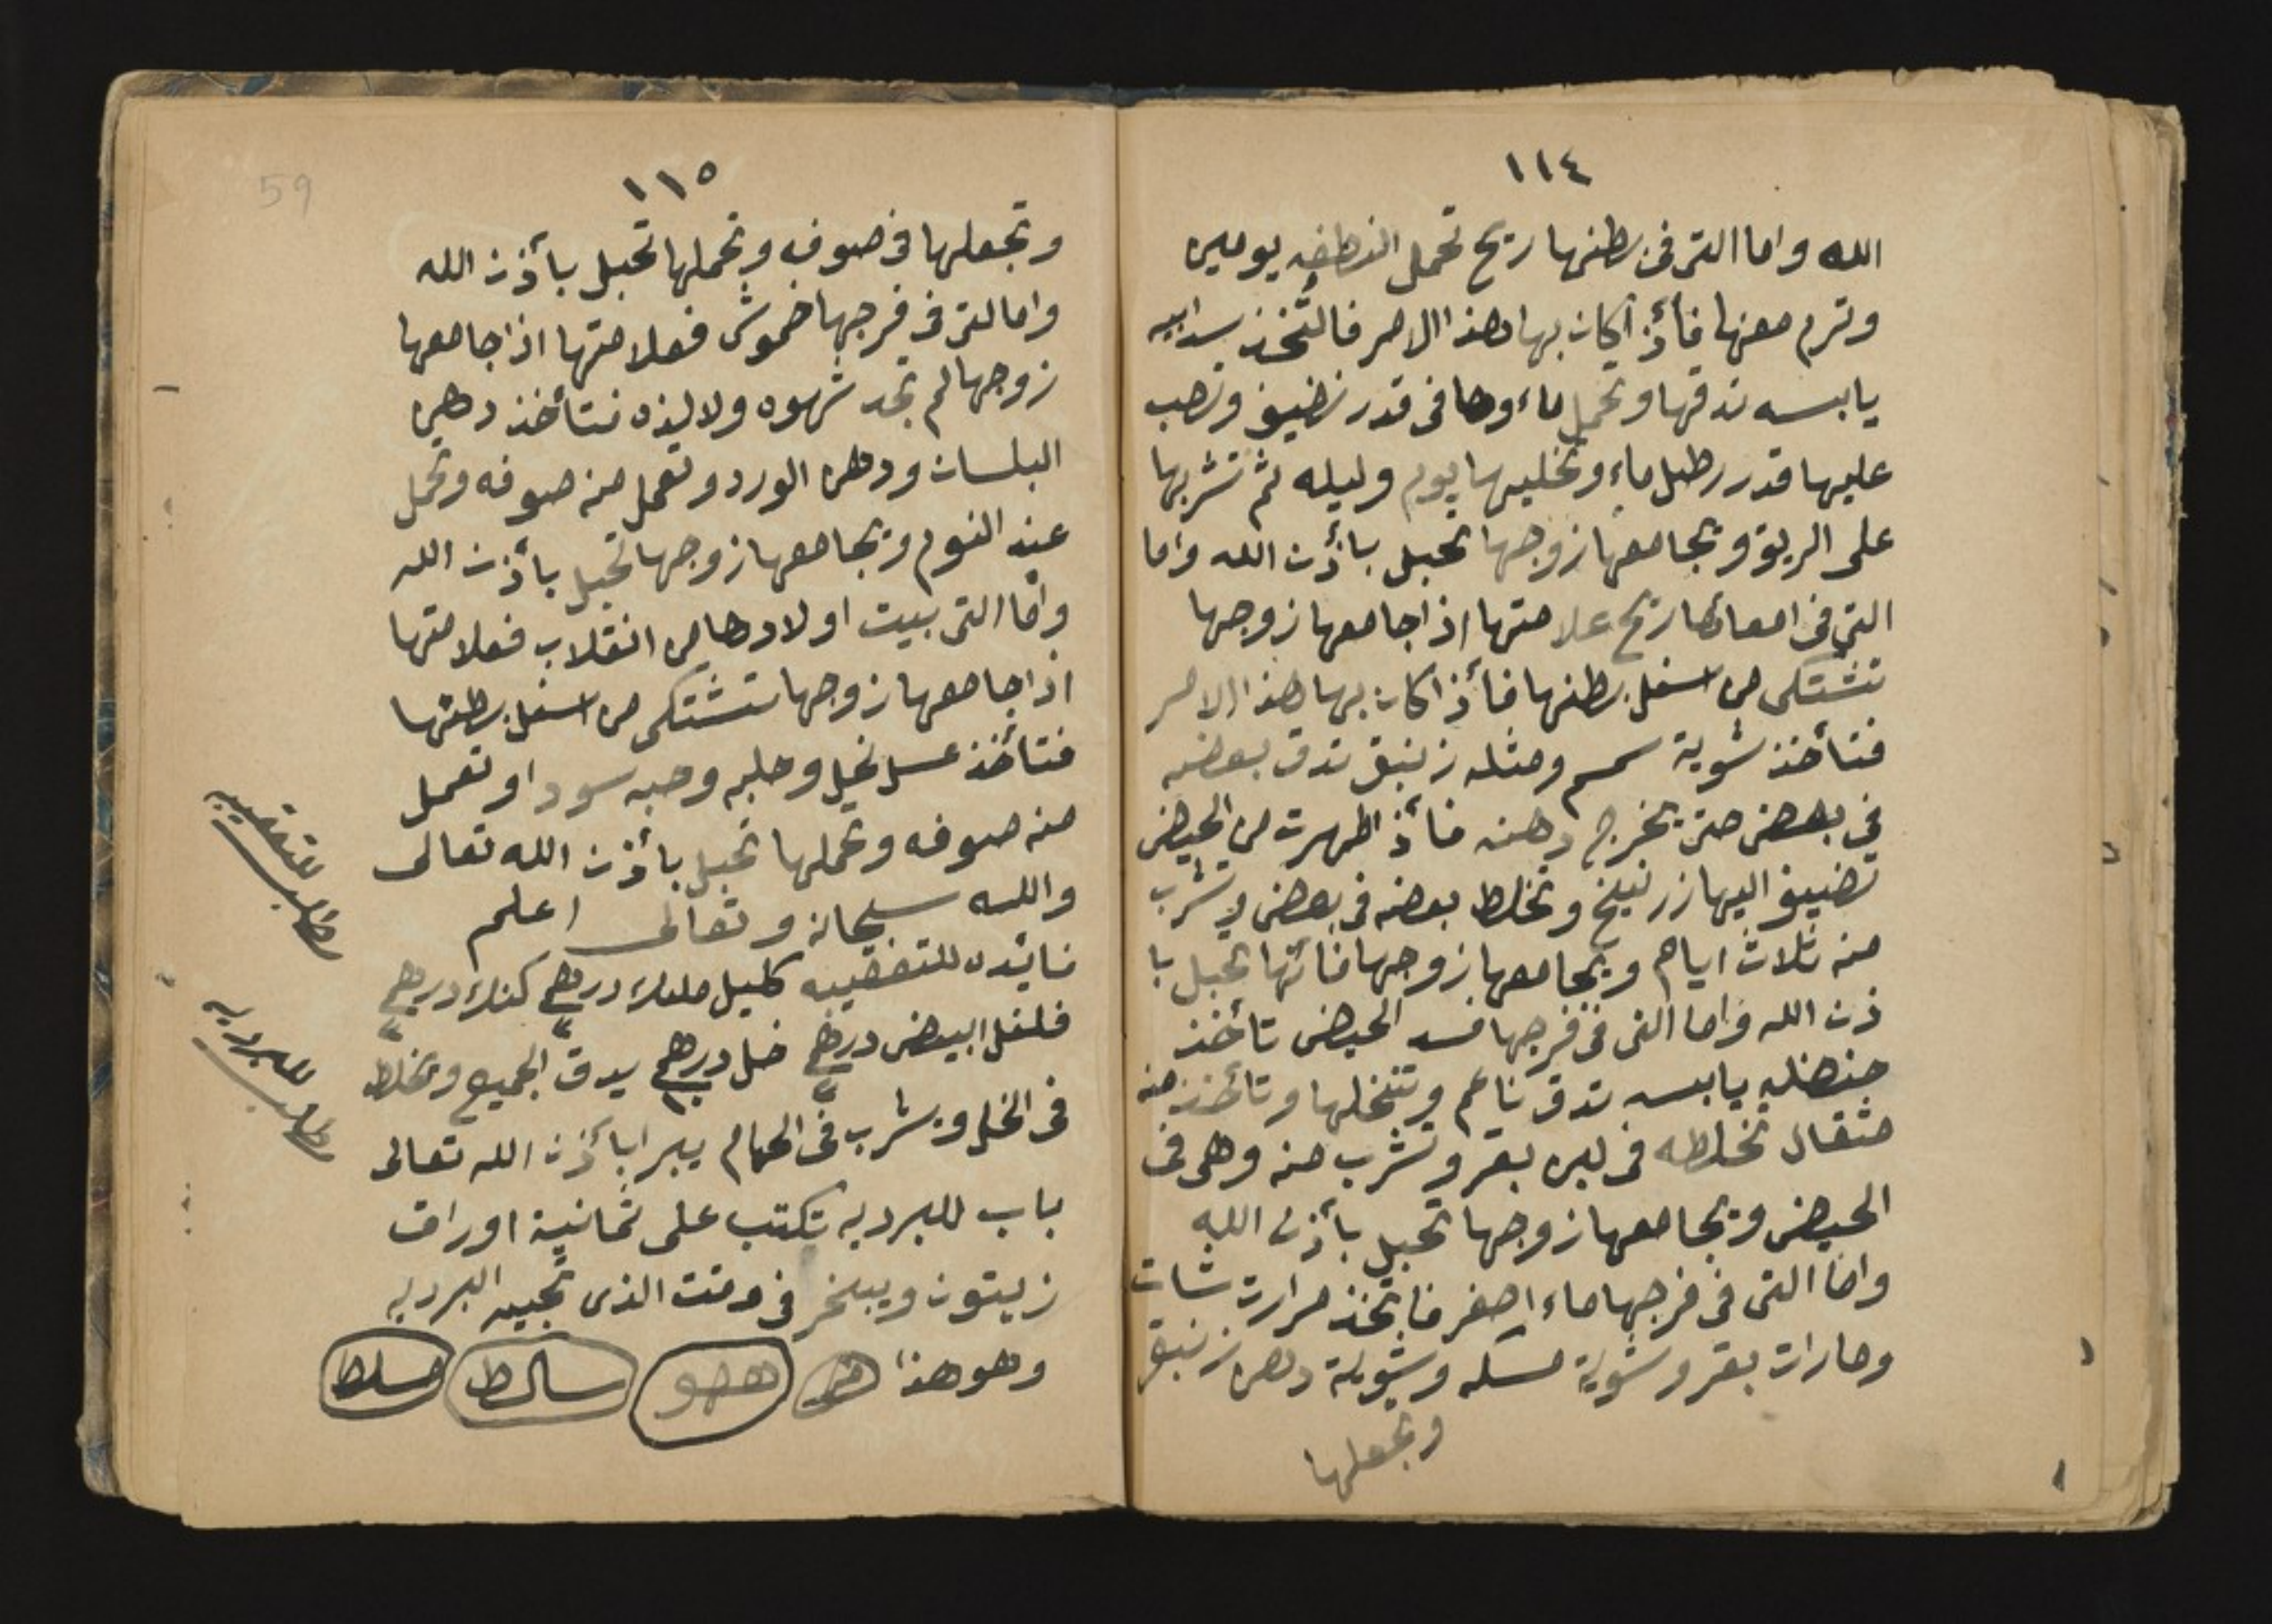 ١١٤
الله واما التى فى بطنها ريح تحمل النطفه يومين
وترم معنها فأذ اكان بها هذا الامر فالتخذ سدابيه
يابسه تدقها وتحمل ماء وها فى قدر نضيف وتصب
عليها قدر رطل ماء وتخليها يوم وليله ثم تشربها
على الريق ويجامعها زوجها تحبل بأذن الله واما
التى فى امعائها ريح علامتها اذا جامعها زوجها
تشتكى من اسفل بطنها فأذا كان بها هذا الامر
فتأخذ شوية سمسم ومثله زنبق تدق بعضه
فى بعض حتى يخرج دهنه فأذ اطهرت من الحيض
تضييف اليها زرنيخ وتخلط بعضه فى بعض وتشرب
منه ثلاث ايام ويجامعها زوجها فأنها تحبل با
ذن الله واما التى فى فرجها فسد الحيض تأخذ
حنضله يابسه تدق ناعم وتنخلها وتأخذ منه
مثقال تخلطه فى لبن بقر وتشرب منه وهى فى
الحيض ويجامعها زوجها تحبل بأذن الله
واما التى فى فرجها ماء اصفر فاتخذ مرارت شات
ومارات بقر وشوية مسكه وشوية دهن زنبق
وتجعلها
١١٥
59
وتجعلها فى صوف وتحملها تحبل بأذن الله
وامالتى فى فرجها خموش فعلامتها اذا جامعها
زوجها لم تجد شهوه ولا ليذه فتأخذ دهن
البلسان ودهن الورد وتعمل منه صوفه وتحمل
عند النوم ويجامعها زوجها تحبل بأذن الله
وامّا التى بيت اولادها من انقلاب فعلامتها
اذا جامعها زوجها تشتكى من اسفل بطنها
فتأخذ عسل نحيل وحلبه وحبه سودا وتعمل
منه صوفه وتحملها تحبل بأذن الله تعالى
والله سبحانه وتعالى اعلم
فائده للتعقيبه كميل ملعلاء درهم كندر درهم
فلفل ابيض درهم خل درهم يدق الجميع وتخلط
فى الخل ويشرب فى الحمام يبرا بأذن الله تعالى
باب للبرديه تكتب على ثمانية اوراق
زيتون ويبخر فى وقت الذى تجيبه البرديه
وهو هذا ههو سالط مسلط
للتعقيبه
مطلب للبرديه